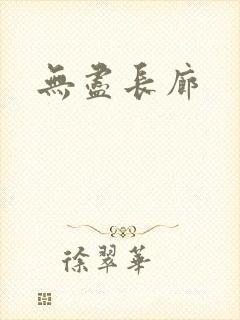 無盡長廊
徐翠華